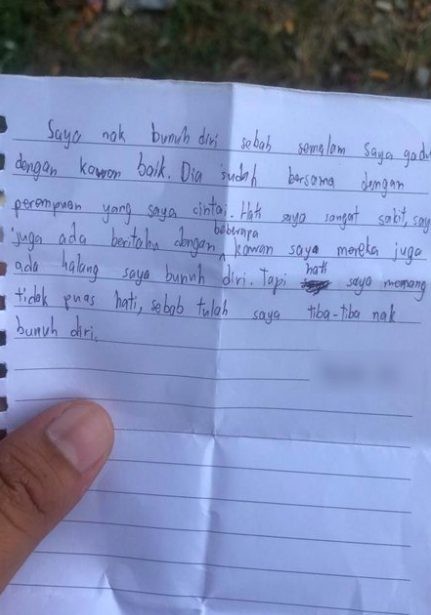 Saya nak bunuh diri sebab semalam saya gadu
dengan kawan baik. Dia sudah bersama dengan
perempuan yang saya cintai. Hati saya sangat sakit, say
juga ada beritahu dengan beberapa kawan saya mereka juga
ada halang saya bunuh diri. Tapi hati saya memang
tidak puas hati, sebab tulah saya tiba-tiba nak
bunuh diri.